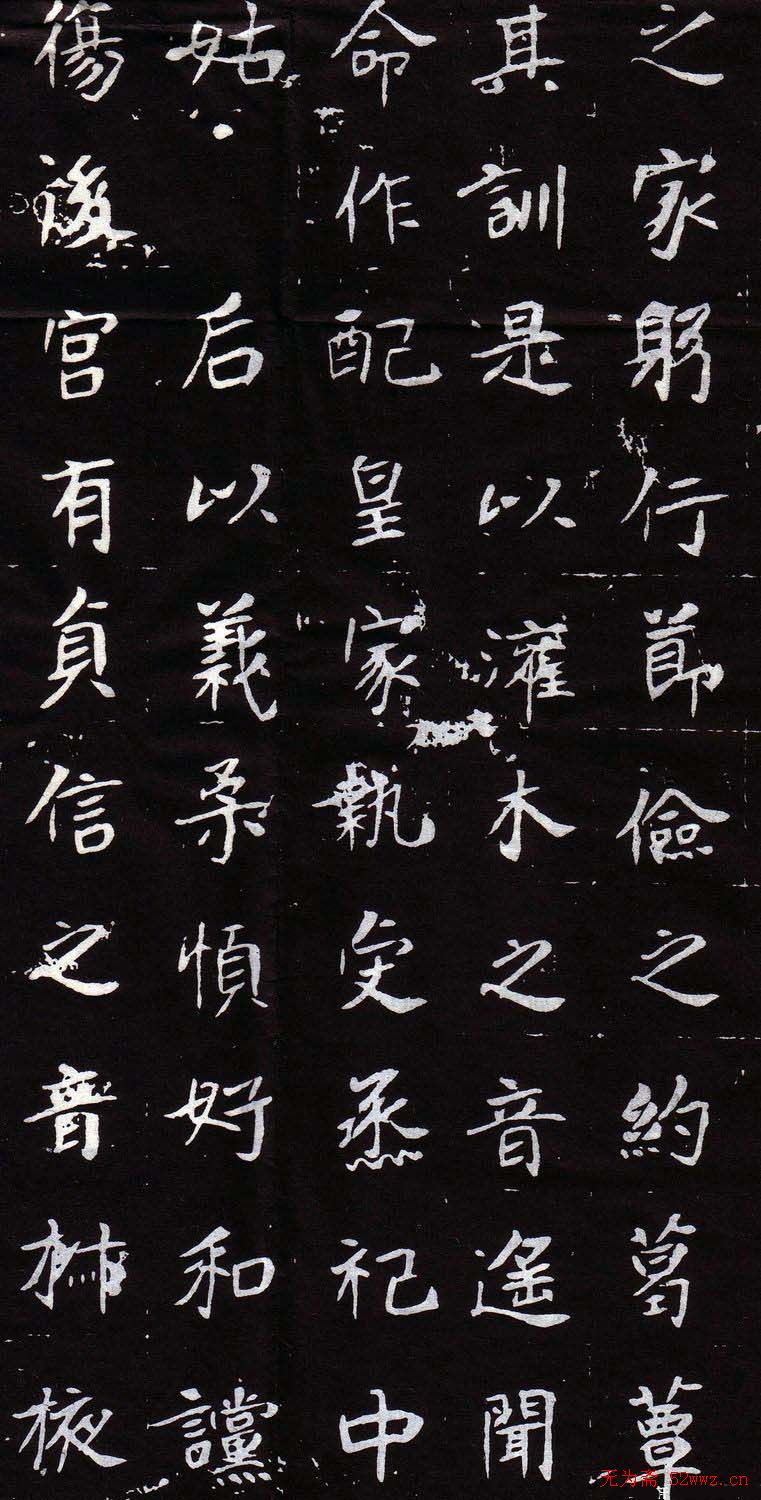 之家躬行節儉之約葛蕈
其訓是以灌木之音遙聞
命作配皇家執蒸祀中
姑后以義柔順好和讜
傷後宮有貞信之音椒掖
无为斋 52wwz.cn